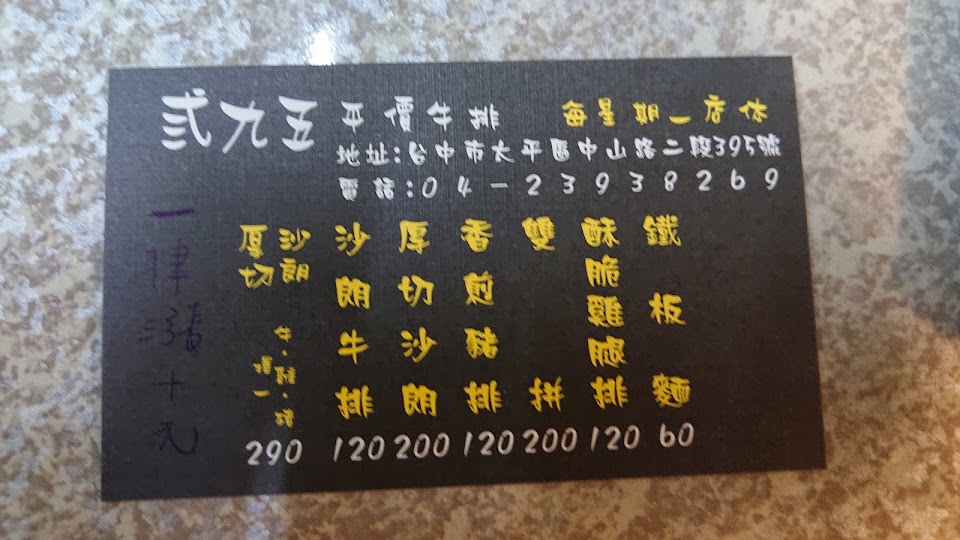 貳九五平價牛排 每星期一店休
地址:台中市太平區中山路二段395號
電話:04-23938269
鐵板麵 60
酥脆雞腿排 120
雙拼 200
香煎豬排 120
厚切沙朗 200
沙朗牛排 120
沙朗
厚切
牛.雞.豬
擇一
290
一律漲十元